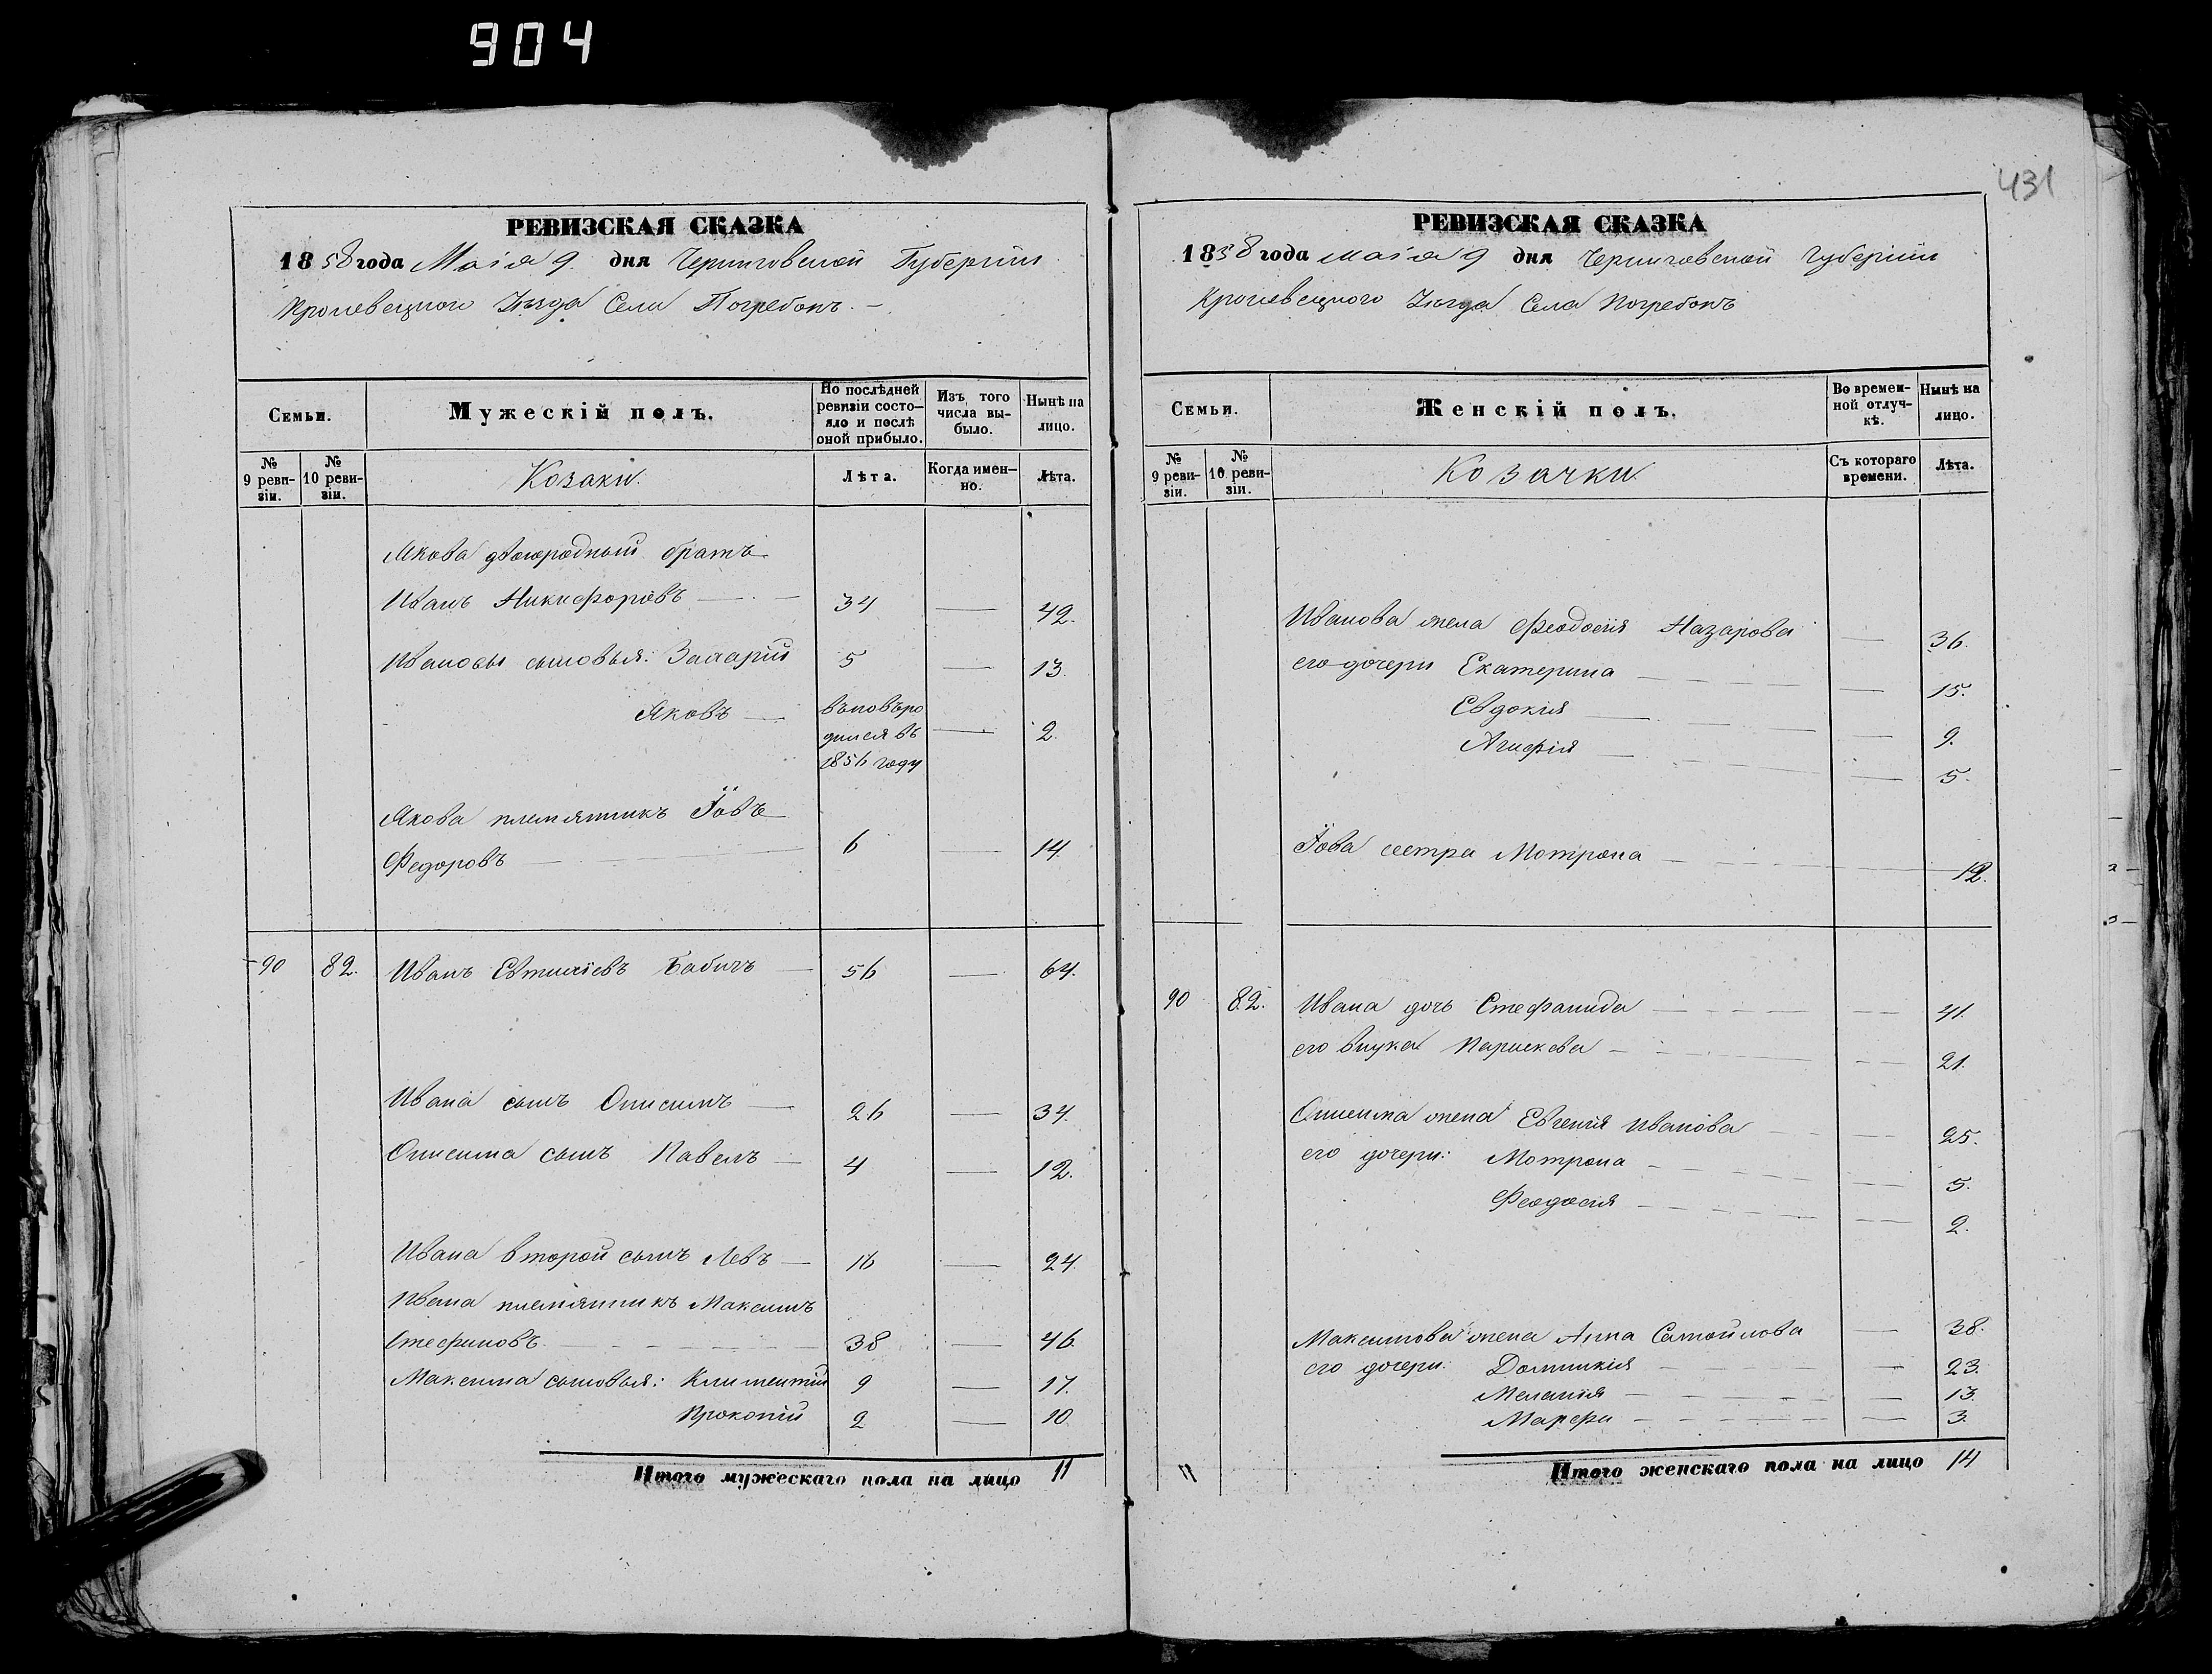 904
431
РЕВИЗСКАЯ СКАЗКА
1858 года Маія 9 дня Черниговской Губерніи
Кролевецкого Уѣзда Села Погребокъ.
Семьи.
Мужескій полъ.
По послѣдней ревизіи состояло и послѣ оной прибыло.
Изъ того числа выбыло.
Нынѣ на лицо.
№ 9 ревизіи.
№ 10 ревизіи.
Козаки.
Лѣта.
Когда именно.
Лѣта.
Якова двоюродный братъ
Иванъ Никифоровъ — 34 — 42.
Ивановы сыновья: Захарій 5 — 13.
Яковъ — въновь родился въ 1856 году — 2.
Якова племянникъ Іовъ
Федоровъ — 6 — 14.
90 82. Иванъ Евтихіевъ Бабичъ — 56 — 64.
Ивана сынъ Онисимъ — 26 — 34.
Онисима сынъ Павелъ — 4 — 12.
Ивана второй сынъ Левъ — 16 — 24.
Ивана племянникъ Максимъ
Стефановъ — 38 — 46.
Максима сыновья: Климентій 9 — 17.
Прокопій 2 — 10.
Итого мужескаго пола на лицо 11
РЕВИЗСКАЯ СКАЗКА
1858 года маія 9 дня Черниговской Губерніи
Кролевецкого Уѣзда Села Погребокъ
Семьи.
Женскій полъ.
Во временной отлучкѣ.
Нынѣ на лицо.
№ 9 ревизіи.
№ 10 ревизіи.
Козачки.
Съ котораго времени.
Лѣта.
Иванова жена Феодосія Назарова — 36.
его дочери Екатерина — 15.
Евдокія — 9.
Агафія — 5.
Іова сестра Мотрона — 12.
90 82. Ивана дочь Стефанида — 41.
его внука Параскева — 21.
Онисима жена Евгенія Иванова — 25.
его дочери: Мотрона — 5.
Феодосія — 2.
Максимова жена Анна Самойлова — 38.
его дочери: Домникія — 23.
Меланія — 13.
Марфа — 3.
11
Итого женскаго пола на лицо 14